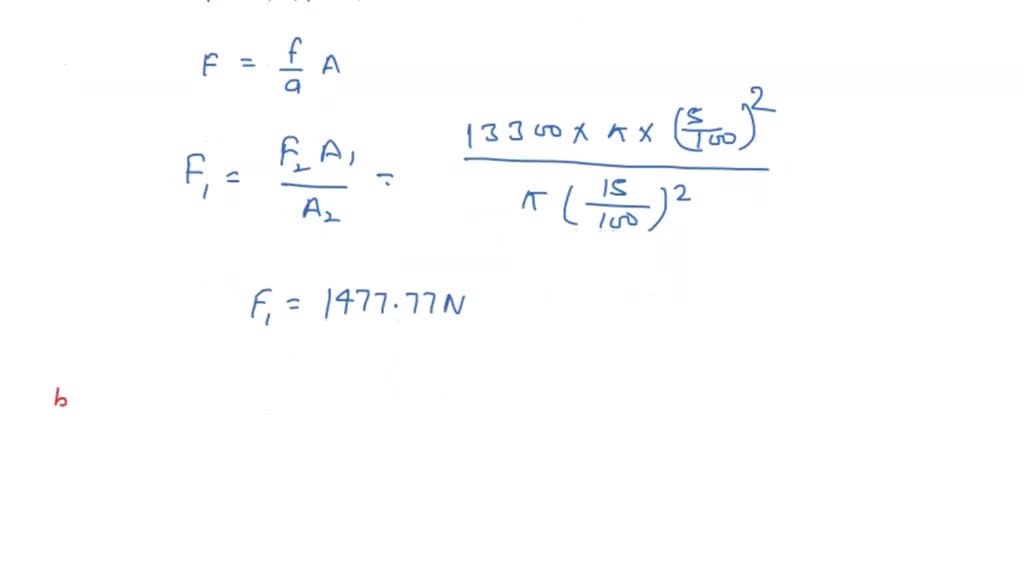 F = f/a A
F₁ = F₂ A₁ / A₂ = 13300 × π × (5/100)² / π (15/100)²
F₁ = 1477.77 N
b